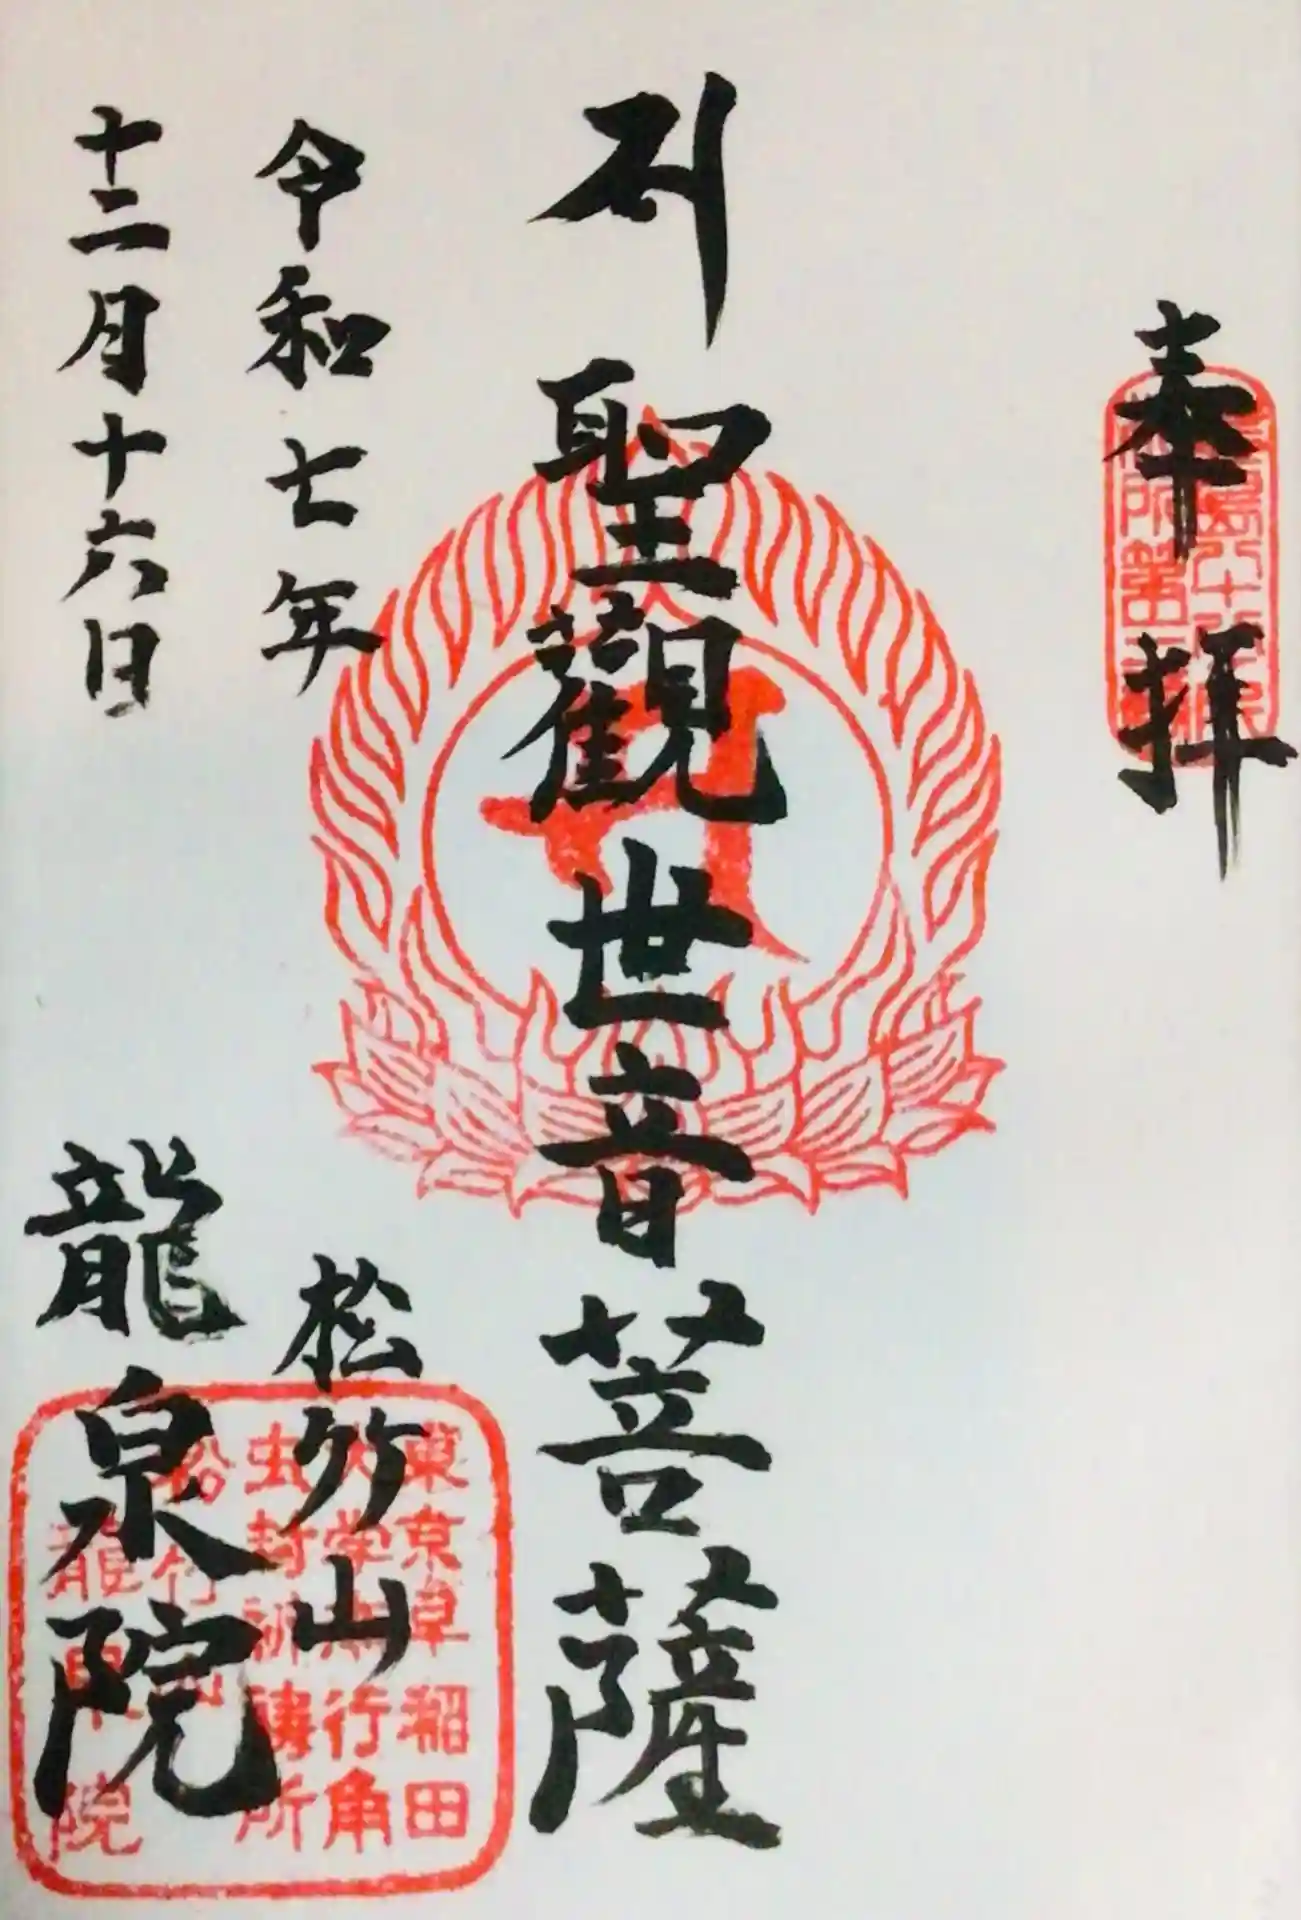 奉拝
聖觀世音菩薩
令和七年
十二月十六日
松竹山
龍泉院
東京早稲田
大学
行角
虫封祈祷所
松竹山
龍泉院